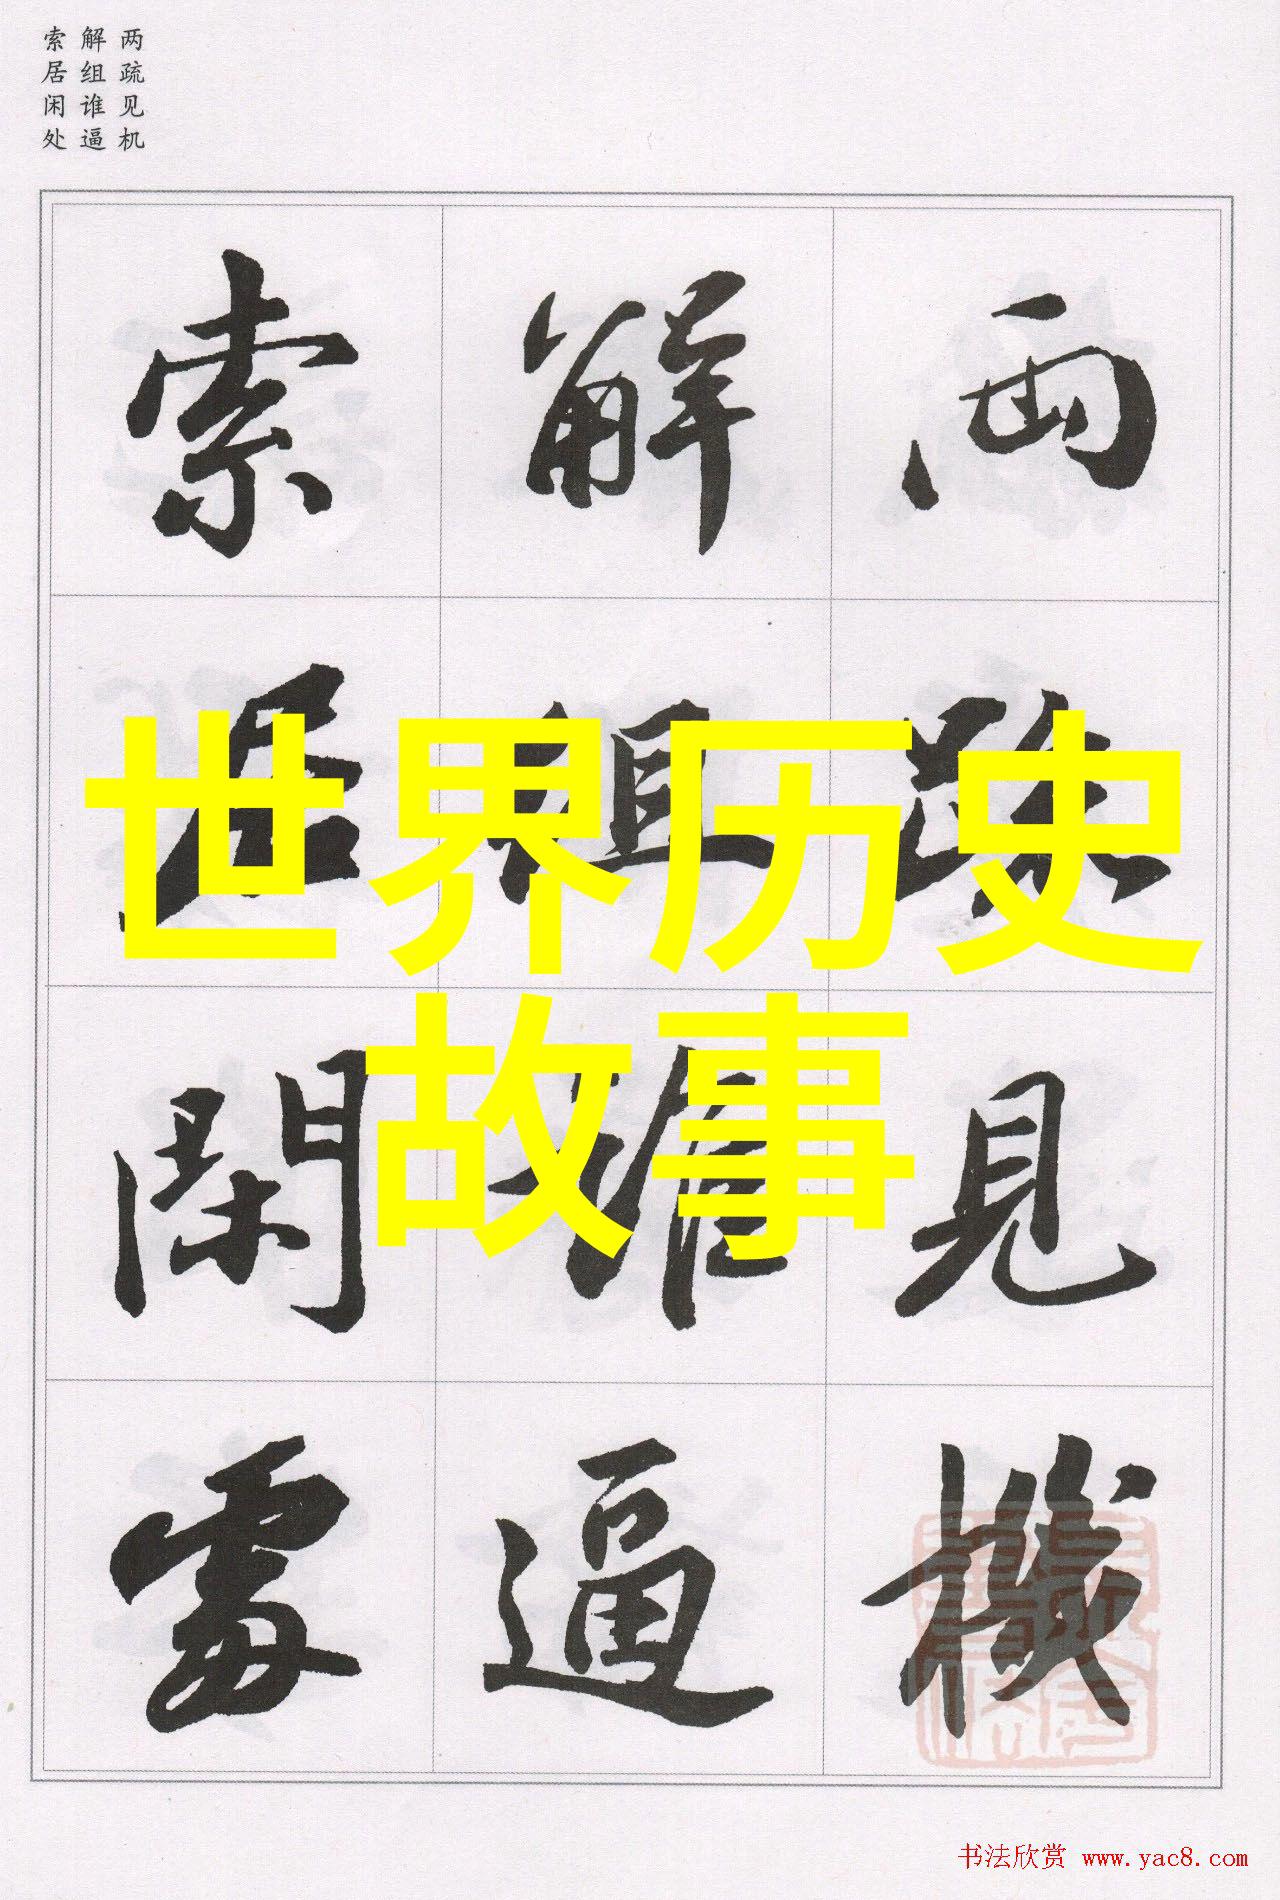 两疏见机
解组谁逼
索居闲处
兩疏見機
解組誰逼
索居閑處
世界历史
故事
书法欣赏 www.yac8.com